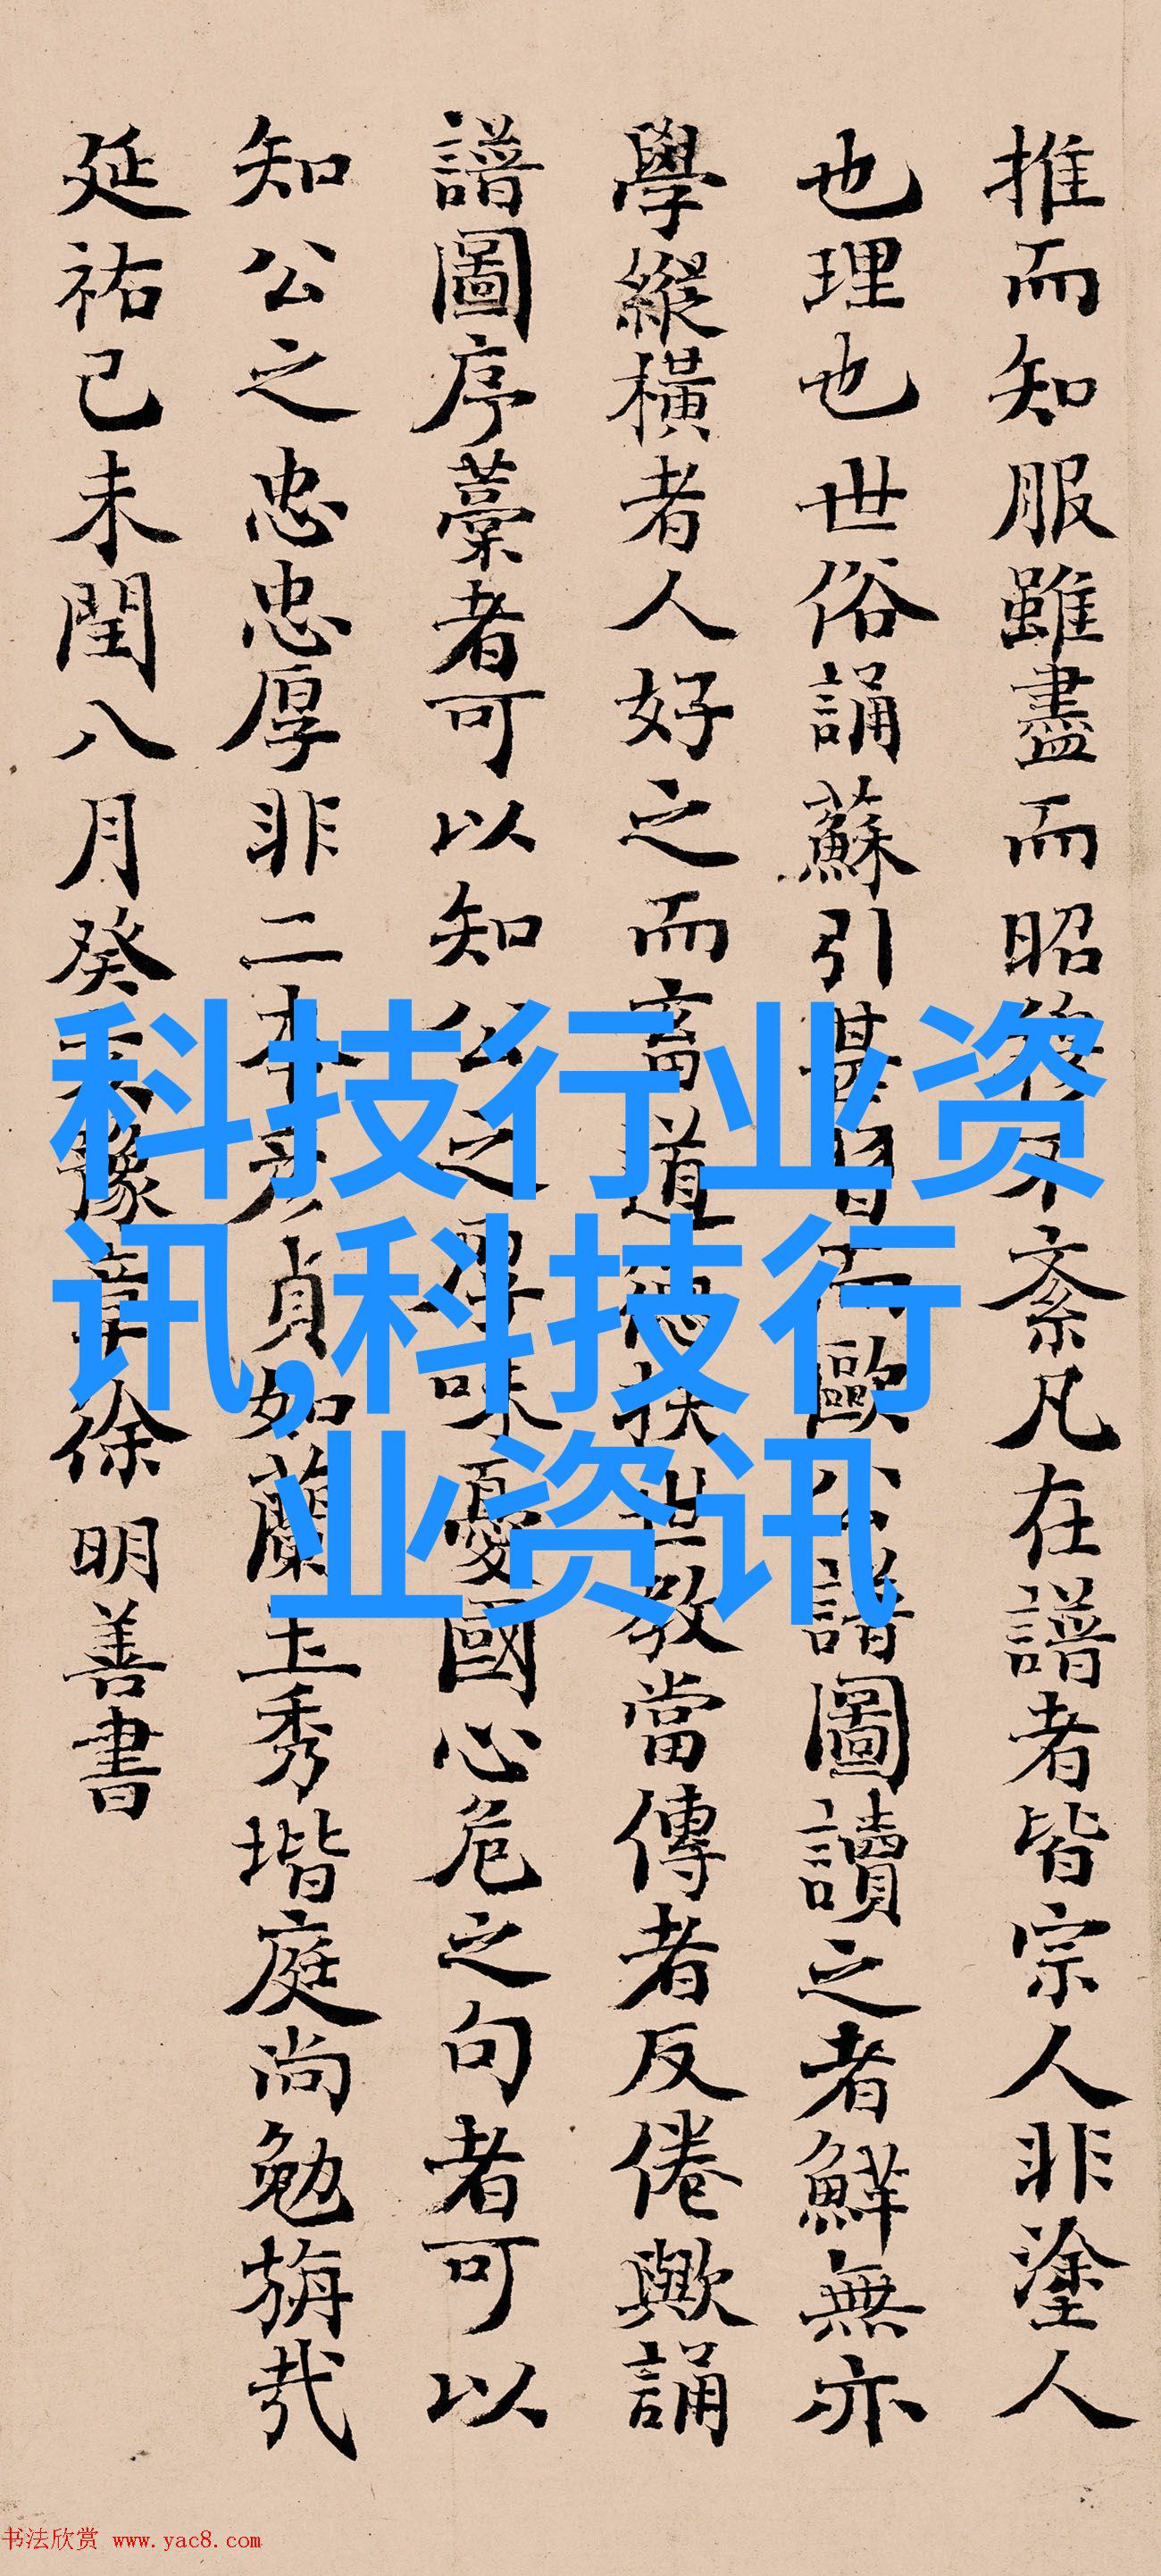 推而知服雖盡而昭穆不紊凡在譜者皆宗人非塗人
也理也世俗誦蘇引甚習而歐公譜圖讀之者鮮無亦
學縱橫者人好之而畜道德扶世教當傳者反倦歟誦
譜圖序藁者可以知公之厚味憂國心危之句者可以
知公之忠忠厚非二本彥貞如蘭玉秀堦庭尚勉旃哉
延祐己未閏八月癸豫章徐明善書
科技行业资
讯,科技行
业资讯
书法欣赏 www.yac8.com